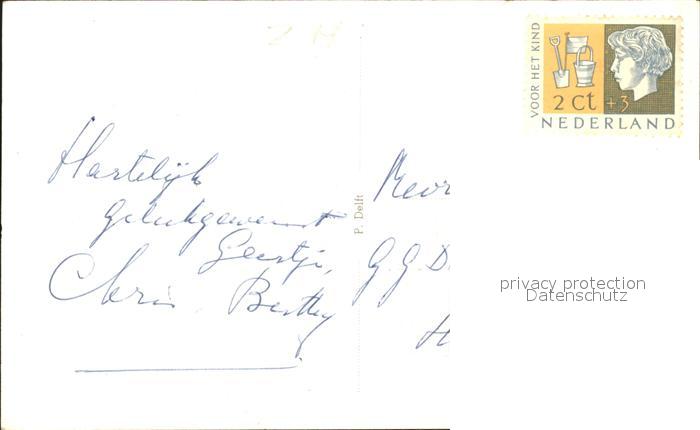 Z H
VOOR HET KIND
2 ct +3
NEDERLAND
Hartelijk
gelukgewenst
Geertje,
Chris. Bertty
P. Delft
Mevr
G. G. D.
H
privacy protection
Datenschutz